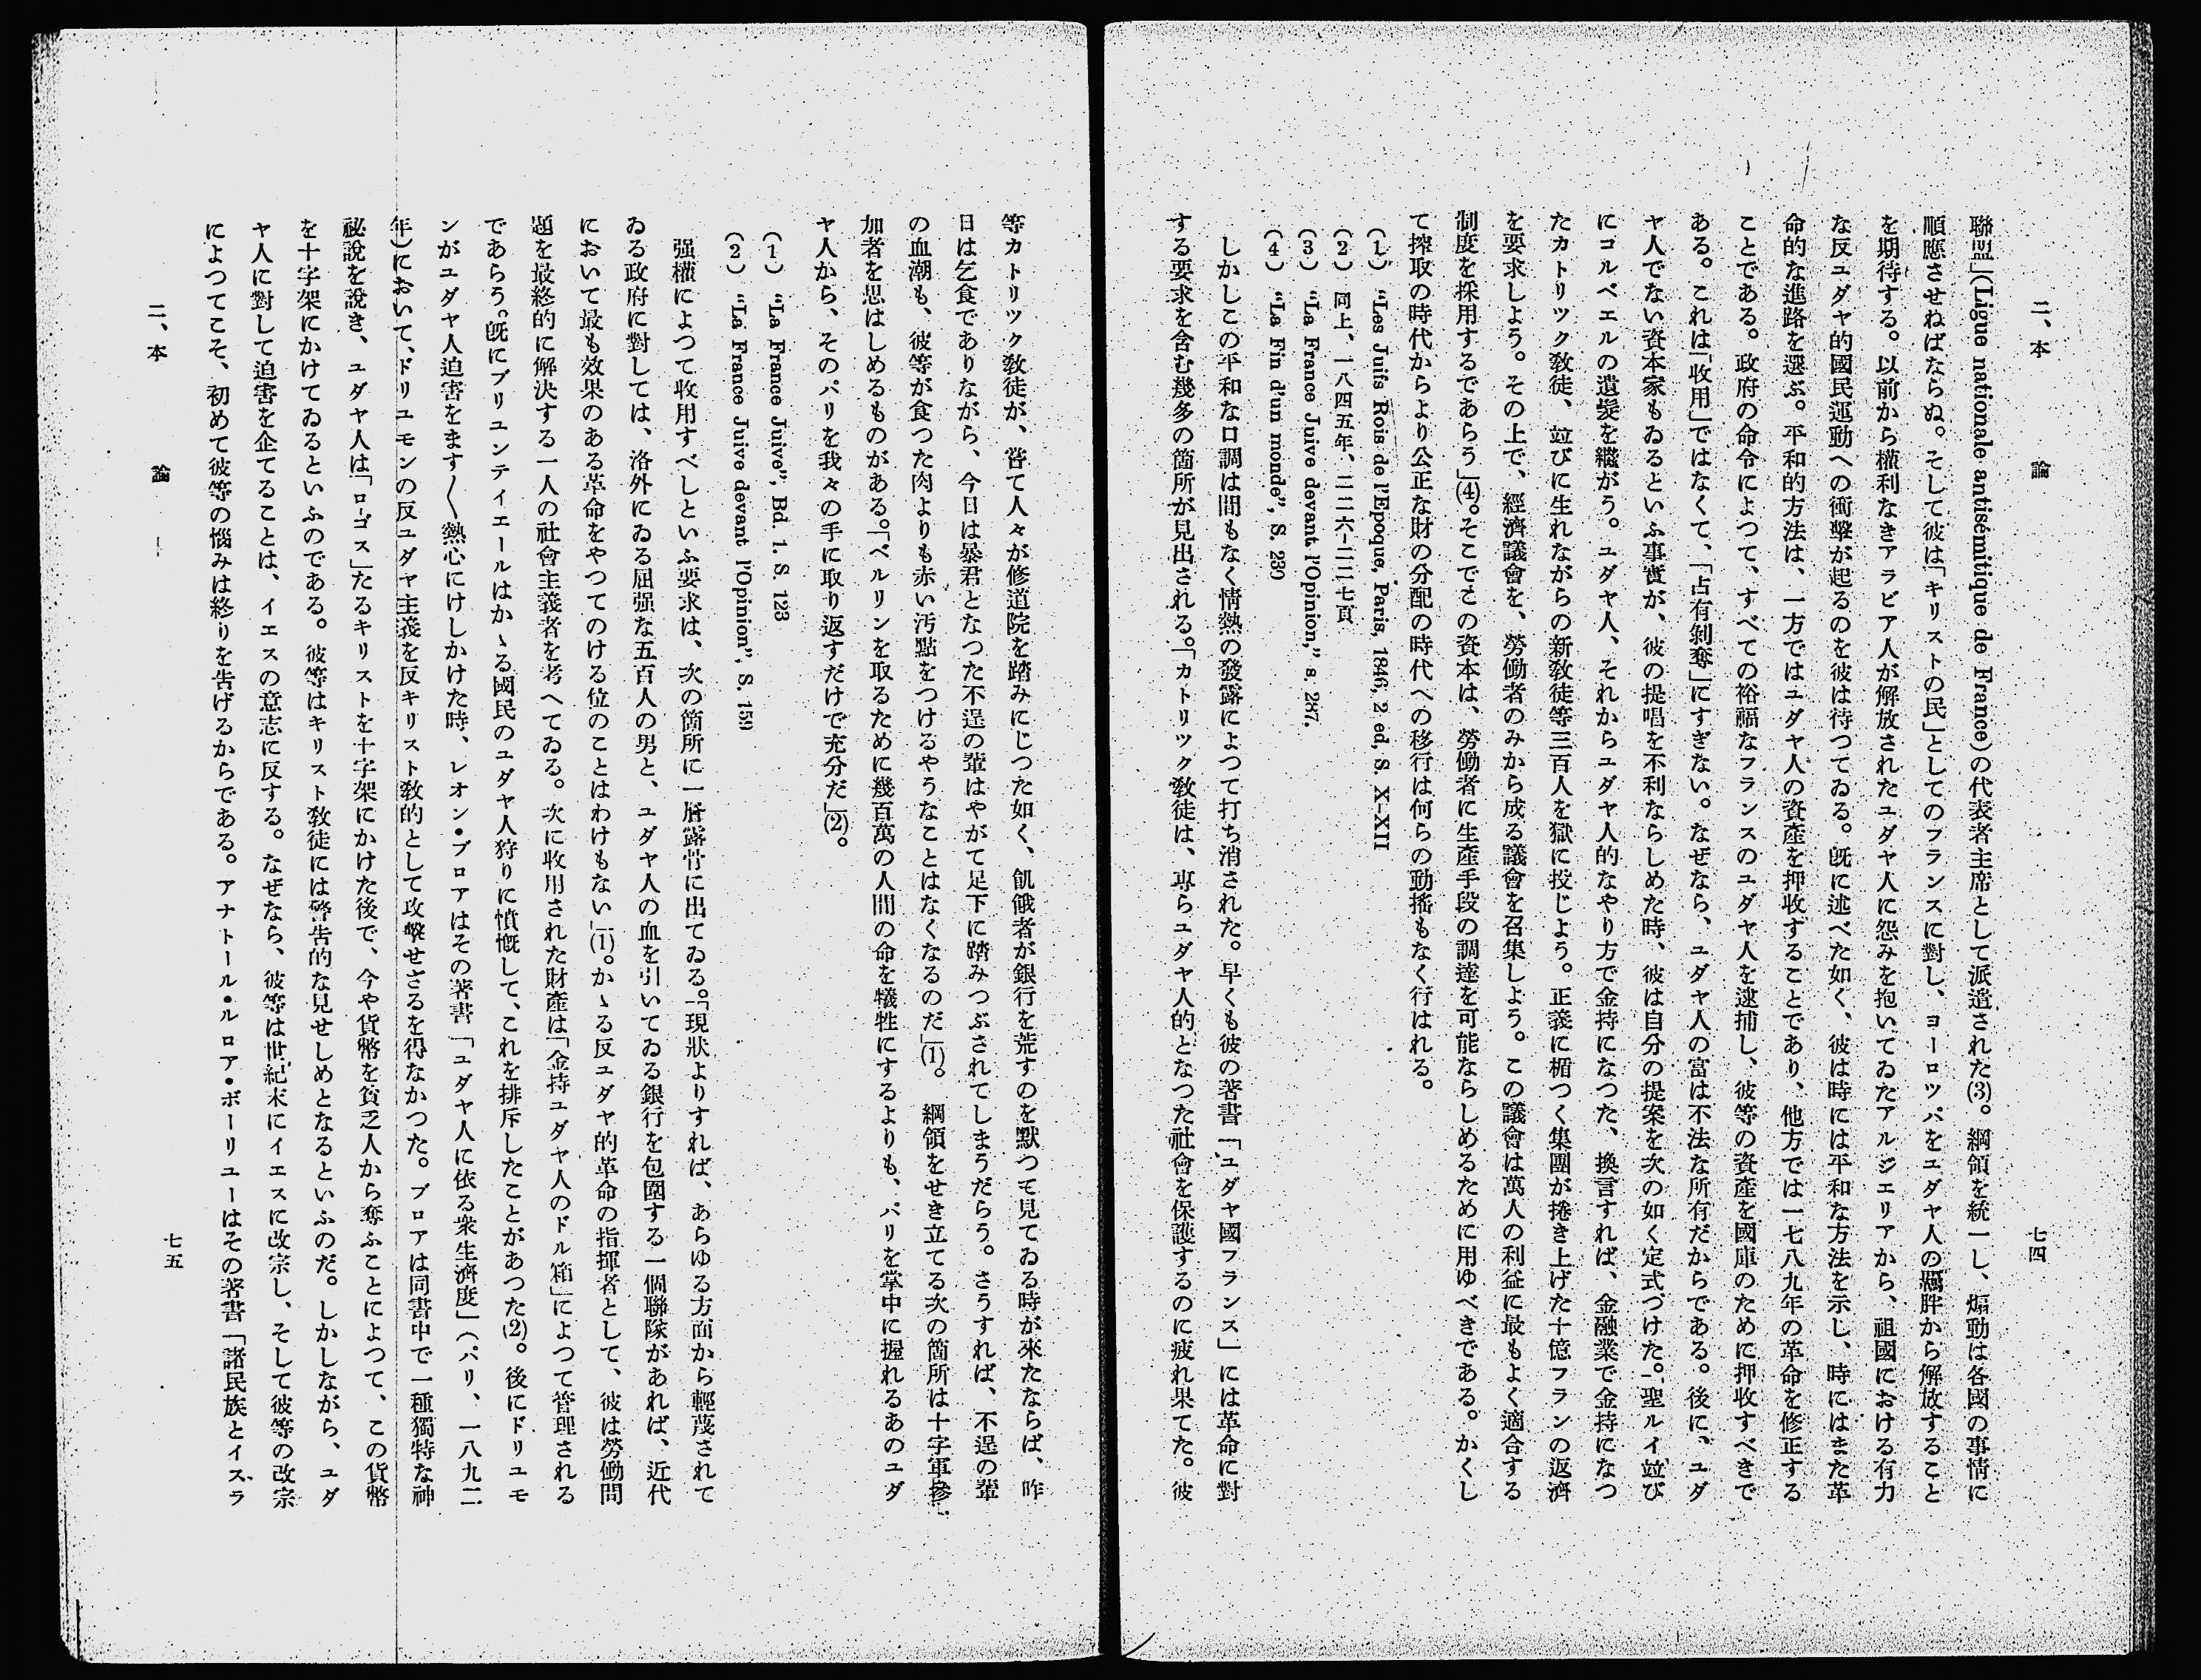 二、本論
七四
聯盟」(Ligue nationale antisémitique de France)の代表者主席として派遣された(3)。綱領を統一し、煽動は各國の事情に
順應させねばならぬ。そして彼は「キリストの民」としてのフランスに對し、ヨーロツパをユダヤ人の羈胖から解放すること
を期待する。以前から權利なきアラビア人が解放されたユダヤ人に怨みを抱いてゐたアルジエリアから、祖國における有力
な反ユダヤ的國民運動への衝擊が起るのを彼は待つてゐる。既に述べた如く、彼は時には平和な方法を示し、時にはまた革
命的な進路を選ぶ。平和的方法は、一方ではユダヤ人の資產を押收することであり、他方では一七八九年の革命を修正する
ことである。政府の命令によつて、すべての裕福なフランスのユダヤ人を逮捕し、彼等の資產を國庫のために押收すべきで
ある。これは「收用」ではなくて、「占有剝奪」にすぎない。なぜなら、ユダヤ人の富は不法な所有だからである。後に、ユダ
ヤ人でない資本家もゐるといふ事實が、彼の提唱を不利ならしめた時、彼は自分の提案を次の如く定式づけた。「聖ルイ竝び
にコルベエルの遺髮を繼がう。ユダヤ人、それからユダヤ人的なやり方で金持になつた、換言すれば、金融業で金持になつ
たカトリツク敎徒、竝びに生れながらの新敎徒等三百人を獄に投じよう。正義に楯つく集團が捲き上げた十億フランの返濟
を要求しよう。その上で、經濟議會を、勞働者のみから成る議會を召集しよう。この議會は萬人の利益に最もよく適合する
制度を採用するであらう」(4)。そこでこの資本は、勞働者に生產手段の調達を可能ならしめるために用ゆべきである。かくし
て搾取の時代からより公正な財の分配の時代への移行は何らの動搖もなく行はれる。
(1) “Les Juifs Rois de l'Epoque, Paris, 1846, 2 ed, S. X-XII
(2) 同上、一八四五年、二二六-二二七頁
(3) “La France Juive devant l'Opinion,” s. 287.
(4) “La Fin d'un monde”, S. 239
しかしこの平和な口調は間もなく情熱の發露によつて打ち消された。早くも彼の著書「ユダヤ國フランス」には革命に對
する要求を含む幾多の箇所が見出される。「カトリツク敎徒は、專らユダヤ人的となつた社會を保護するのに疲れ果てた。彼
等カトリツク敎徒が、甞て人々が修道院を踏みにじつた如く、飢餓者が銀行を荒すのを默つて見てゐる時が來たならば、昨
日は乞食でありながら、今日は暴君となつた不逞の輩はやがて足下に踏みつぶされてしまうだらう。さうすれば、不逞の輩
の血潮も、彼等が食つた肉よりも赤い汚點をつけるやうなことはなくなるのだ」(1)。 綱領をせき立てる次の箇所は十字軍參
加者を思はしめるものがある。「ベルリンを取るために幾百萬の人間の命を犧牲にするよりも、パリを掌中に握れるあのユダ
ヤ人から、そのパリを我々の手に取り返すだけで充分だ」(2)。
(1) “La France Juive”, Bd. 1. S. 123
(2) “La France Juive devant l'Opinion”, S. 159
强權によつて收用すべしといふ要求は、次の箇所に一層露骨に出てゐる。「現狀よりすれば、あらゆる方面から輕蔑されて
ゐる政府に對しては、洛外にゐる屈强な五百人の男と、ユダヤ人の血を引いてゐる銀行を包圍する一個聯隊があれば、近代
において最も效果のある革命をやつてのける位のことはわけもない」(1)。かゝる反ユダヤ的革命の指揮者として、彼は勞働問
題を最終的に解決する一人の社會主義者を考へてゐる。次に收用された財產は「金持ユダヤ人のドル箱」によつて管理される
であらう。既にブリユンテイエールはかゝる國民のユダヤ人狩りに憤慨して、これを排斥したことがあつた(2)。後にドリユモ
ンがユダヤ人迫害をます〱熱心にけしかけた時、レオン・ブロアはその著書「ユダヤ人に依る衆生濟度」(パリ、一八九二
年)において、ドリユモンの反ユダヤ主義を反キリスト敎的として攻擊せざるを得なかつた。ブロアは同書中で一種獨特な神
祕說を說き、ユダヤ人は「ロゴス」たるキリストを十字架にかけた後で、今や貨幣を貧乏人から奪ふことによつて、この貨幣
を十字架にかけてゐるといふのである。彼等はキリスト敎徒には警告的な見せしめとなるといふのだ。しかしながら、ユダ
ヤ人に對して迫害を企てることは、イエスの意志に反する。なぜなら、彼等は世紀末にイエスに改宗し、そして彼等の改宗
によつてこそ、初めて彼等の惱みは終りを告げるからである。アナトール・ルロア・ボーリユーはその著書「諸民族とイスラ
二、本論
七五